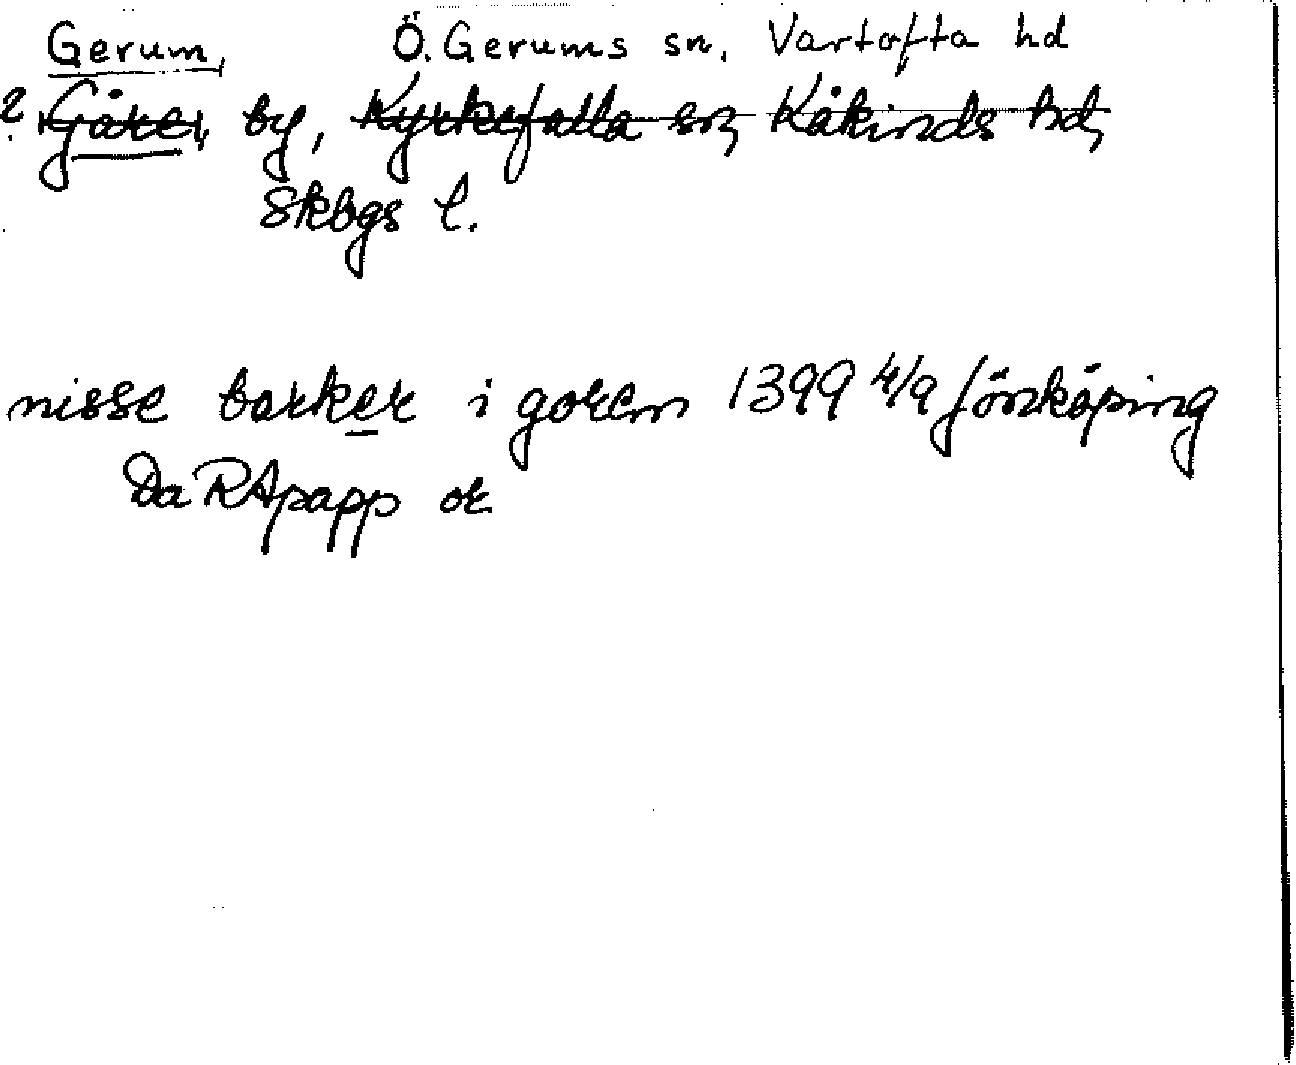 Gerum, Ö. Gerums sn, Vartofta hd
? Gåre, by, Kyrkefalla sn, Kåkinds hd,
Skbgs l.
nisse barker i gorem 1399 4/9 Jönköping
Da RApapp or